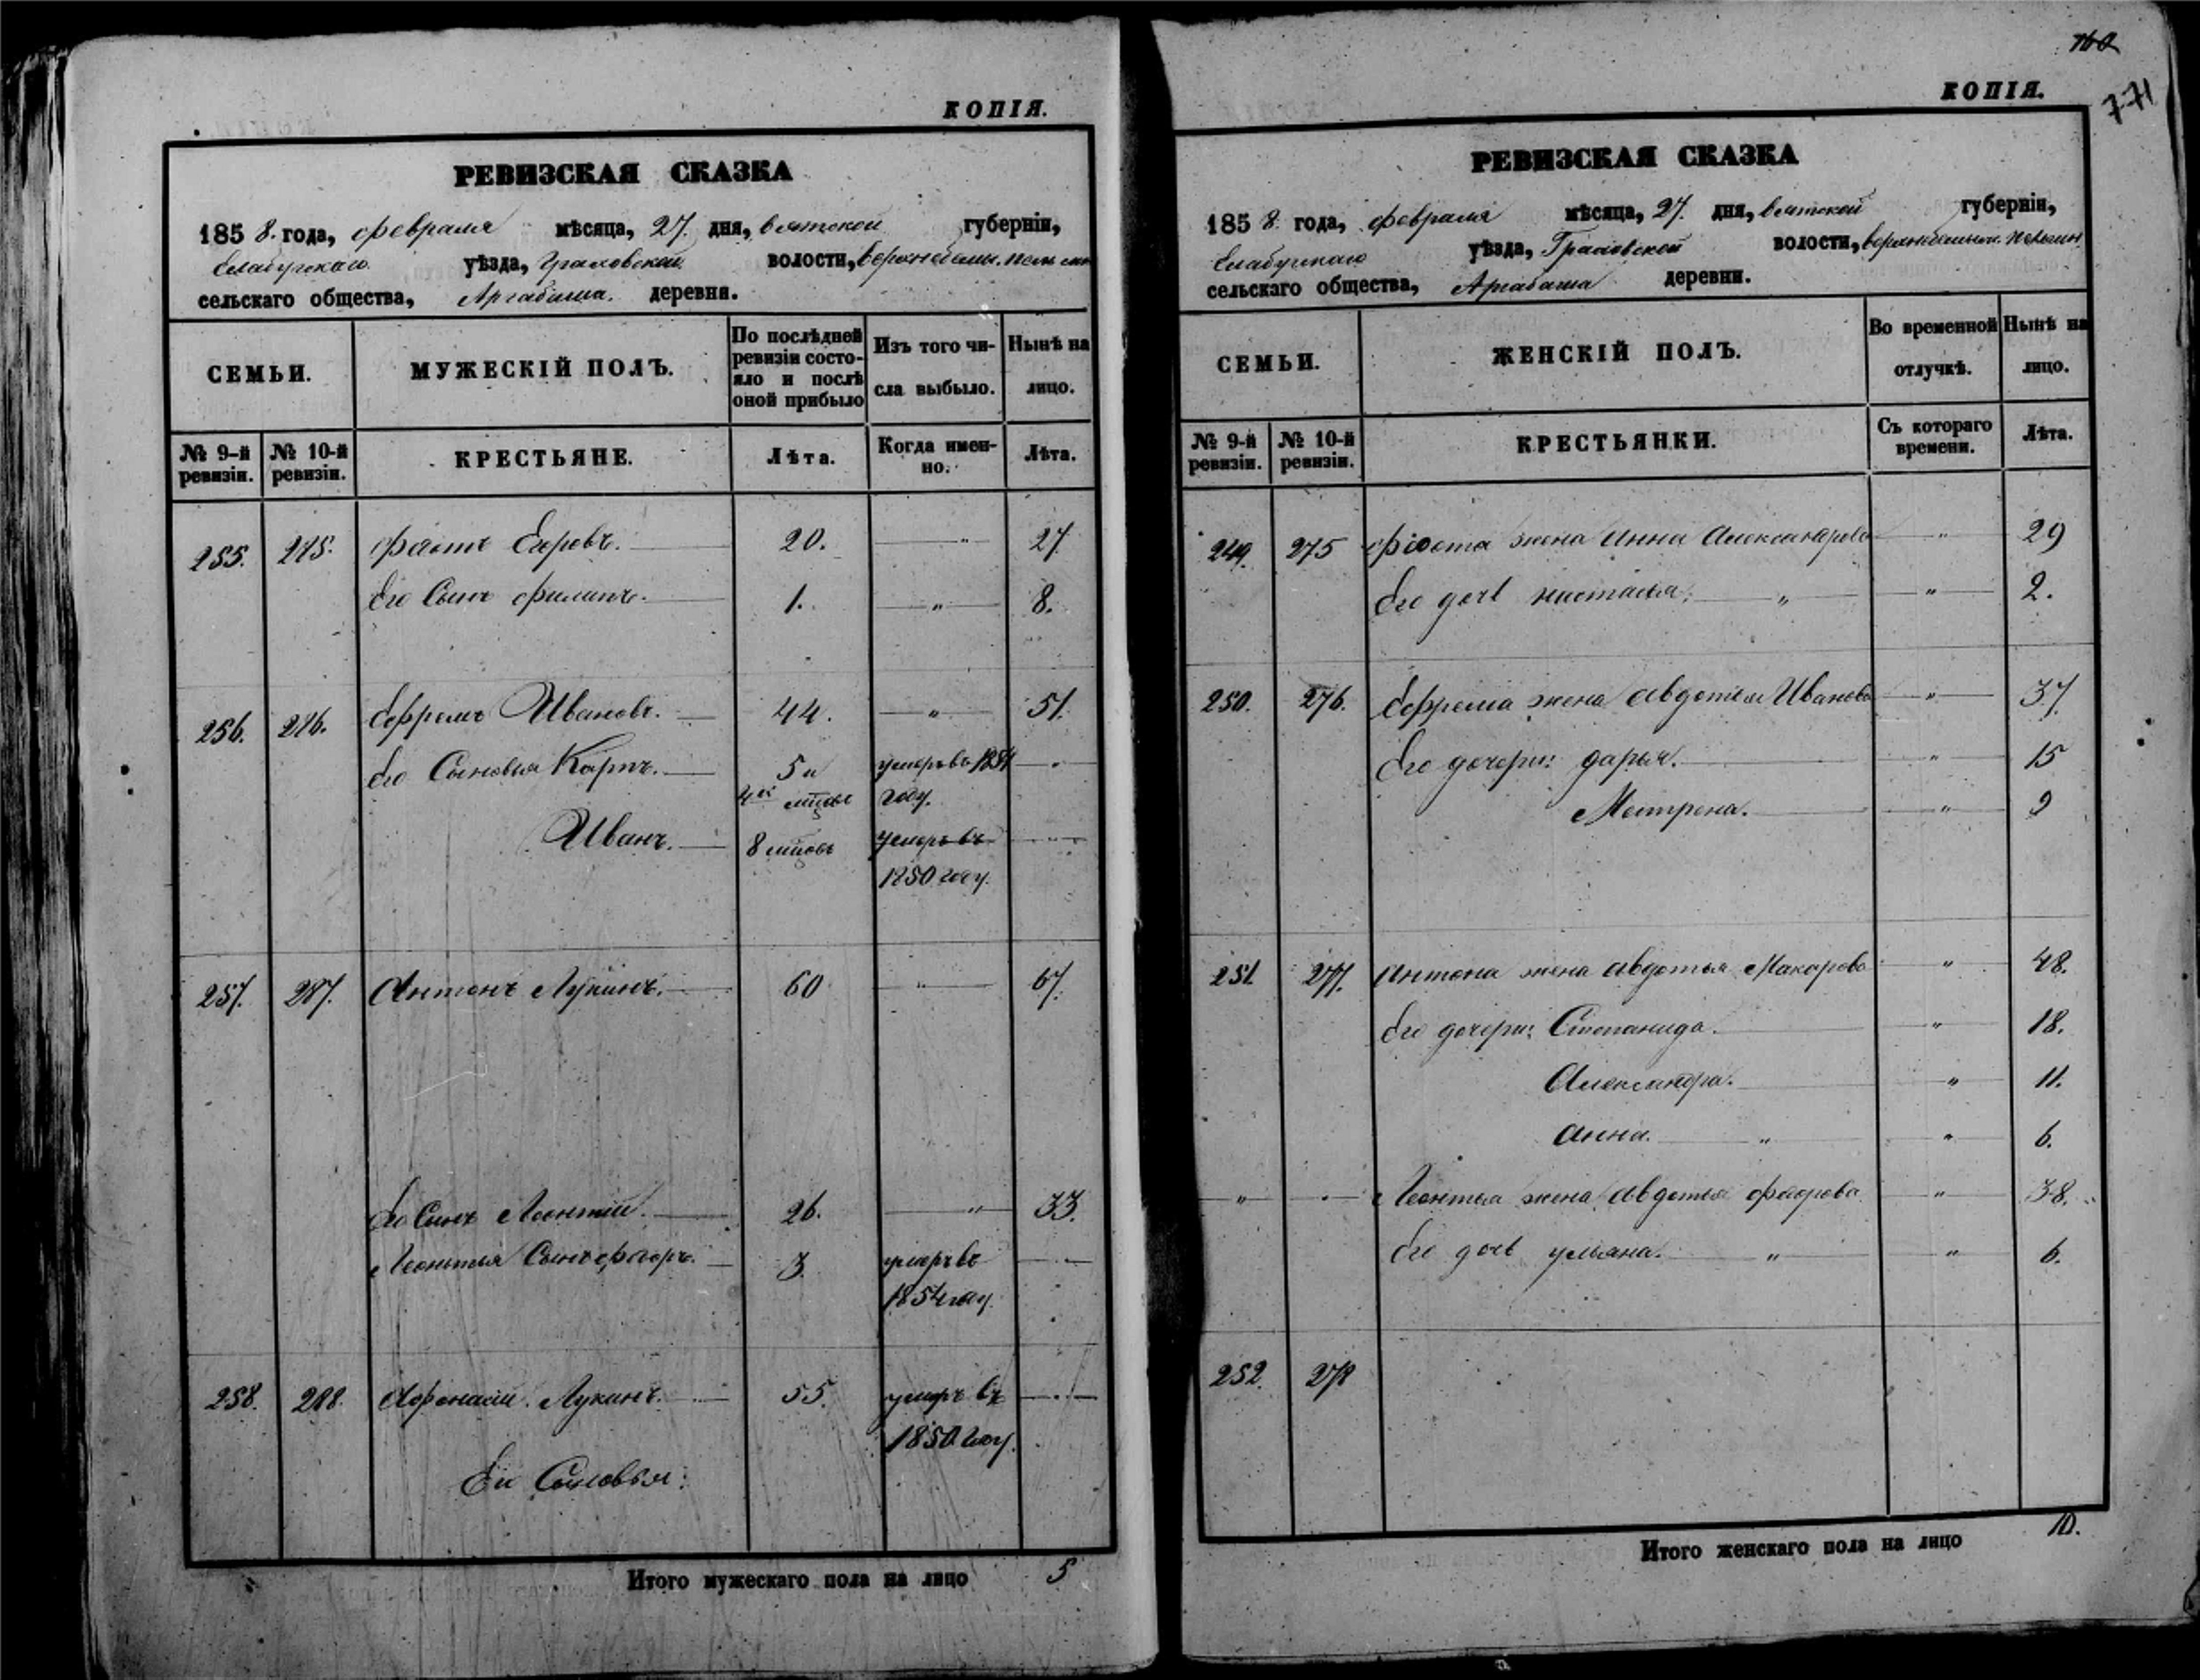 КОПІЯ.
РЕВИЗСКАЯ СКАЗКА
1858. года, февраля мѣсяца, 27. дня, вятской губерніи,
Елабугскаго уѣзда, Граховской волости,
сельскаго общества, Аргабаша. деревни.
СЕМЬИ. МУЖЕСКІЙ ПОЛЪ. По послѣдней ревизіи состояло и послѣ оной прибыло Изъ того числа выбыло. Нынѣ на лицо.
№ 9-й ревизіи. № 10-й ревизіи. КРЕСТЬЯНЕ. Лѣта. Когда именно. Лѣта.
255. 285. Федотъ Егоровъ. 20. — " — 27
Его Сынъ Филипъ. 1. — " — 8.
256. 286. Ефремъ Ивановъ. 44. — " — 51.
Его Сыновья Карпъ. 5 и умеръ въ 1854
4ех мцовъ году.
Иванъ. 8 мцовъ умеръ въ
1850 году.
257. 287. Антонъ Лукинъ. 60 — " — 67.
Его Сынъ Леонтій. 26. — " — 33.
Леонтья Сынъ Федоръ. 3. умеръ въ
1854 году
258. 288. Афонасій Лукинъ. 55. умеръ въ
1850 году.
Ея Сыновья:
Итого мужескаго пола на лицо 5
160
КОПІЯ.
771
РЕВИЗСКАЯ СКАЗКА
1858. года, февраля мѣсяца, 27. дня, вятской губерніи,
Елабугскаго уѣзда, Граховской волости,
сельскаго общества, Аргабаша деревни.
СЕМЬИ. ЖЕНСКІЙ ПОЛЪ. Во временной отлучкѣ. Нынѣ на лицо.
№ 9-й ревизіи. № 10-й ревизіи. КРЕСТЬЯНКИ. Съ котораго времени. Лѣта.
249. 275 Федота жена Анна Александрова — " — 29
Его дочь Настасья, — " — 2.
250. 276. Ефрема жена Авдотья Иванова — " — 37
Его дочери: Дарья. — " — 15
Мотрена. — " — 9
251 277. Антона жена Авдотья Макарова — " — 48.
Его дочери: Степанида. — " — 18.
Александра. — " — 11.
Анна. — " — 6.
Леонтья жена Авдотья Федорова — " — 38.
Его дочь Ульяна. — " — 6.
252. 278
Итого женскаго пола на лицо 10.